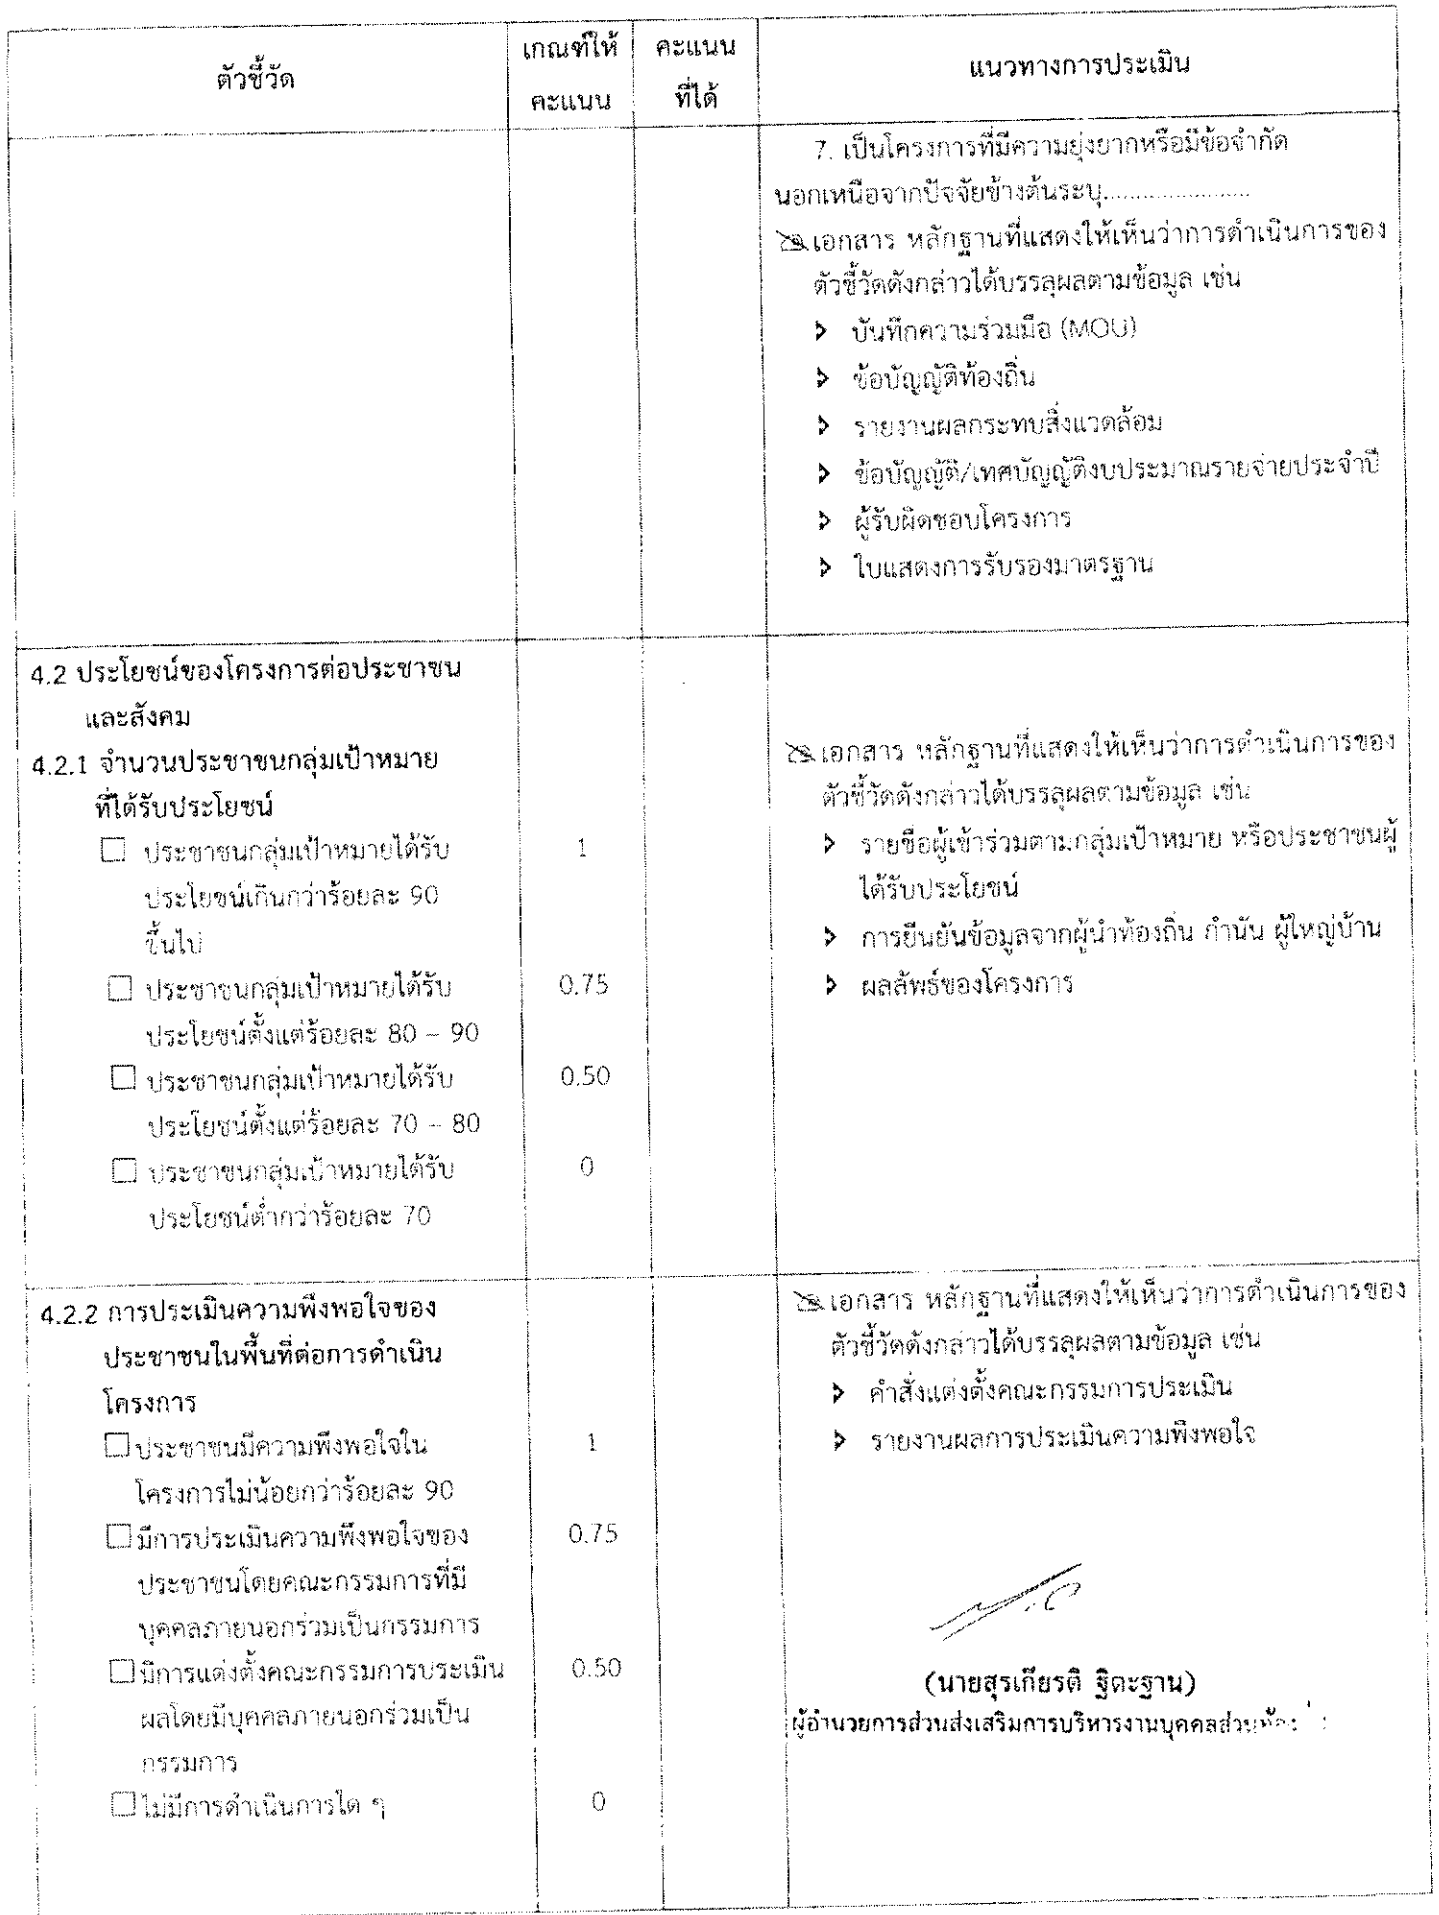 ตัวชี้วัด
เกณฑ์ให้
คะแนน
คะแนน
ที่ได้
แนวทางการประเมิน
7. เป็นโครงการที่มีความยุ่งยากหรือมีข้อจำกัด
นอกเหนือจากปัจจัยข้างต้นระบุ......................
เอกสาร หลักฐานที่แสดงให้เห็นว่าการดำเนินการของ
ตัวชี้วัดดังกล่าวได้บรรลุผลตามข้อมูล เช่น
บันทึกความร่วมมือ (MOU)
ข้อบัญญัติท้องถิ่น
รายงานผลกระทบสิ่งแวดล้อม
ข้อบัญญัติ/เทศบัญญัติงบประมาณรายจ่ายประจำปี
ผู้รับผิดชอบโครงการ
ใบแสดงการรับรองมาตรฐาน
4.2 ประโยชน์ของโครงการต่อประชาชน
และสังคม
4.2.1 จำนวนประชาชนกลุ่มเป้าหมาย
ที่ได้รับประโยชน์
☐ ประชาชนกลุ่มเป้าหมายได้รับ 1
ประโยชน์เกินกว่าร้อยละ 90
ขึ้นไป
☐ ประชาชนกลุ่มเป้าหมายได้รับ 0.75
ประโยชน์ตั้งแต่ร้อยละ 80 – 90
☐ ประชาชนกลุ่มเป้าหมายได้รับ 0.50
ประโยชน์ตั้งแต่ร้อยละ 70 – 80
☐ ประชาชนกลุ่มเป้าหมายได้รับ 0
ประโยชน์ต่ำกว่าร้อยละ 70
เอกสาร หลักฐานที่แสดงให้เห็นว่าการดำเนินการของ
ตัวชี้วัดดังกล่าวได้บรรลุผลตามข้อมูล เช่น
รายชื่อผู้เข้าร่วมตามกลุ่มเป้าหมาย หรือประชาชนผู้
ได้รับประโยชน์
การยืนยันข้อมูลจากผู้นำท้องถิ่น กำนัน ผู้ใหญ่บ้าน
ผลลัพธ์ของโครงการ
4.2.2 การประเมินความพึงพอใจของ
ประชาชนในพื้นที่ต่อการดำเนิน
โครงการ
☐ ประชาชนมีความพึงพอใจใน 1
โครงการไม่น้อยกว่าร้อยละ 90
☐ มีการประเมินความพึงพอใจของ 0.75
ประชาชนโดยคณะกรรมการที่มี
บุคคลภายนอกร่วมเป็นกรรมการ
☐ มีการแต่งตั้งคณะกรรมการประเมิน 0.50
ผลโดยมีบุคคลภายนอกร่วมเป็น
กรรมการ
☐ ไม่มีการดำเนินการใด ๆ 0
เอกสาร หลักฐานที่แสดงให้เห็นว่าการดำเนินการของ
ตัวชี้วัดดังกล่าวได้บรรลุผลตามข้อมูล เช่น
คำสั่งแต่งตั้งคณะกรรมการประเมิน
รายงานผลการประเมินความพึงพอใจ
(นายสุรเกียรติ ฐิตะฐาน)
ผู้อำนวยการส่วนส่งเสริมการบริหารงานบุคคลส่วน